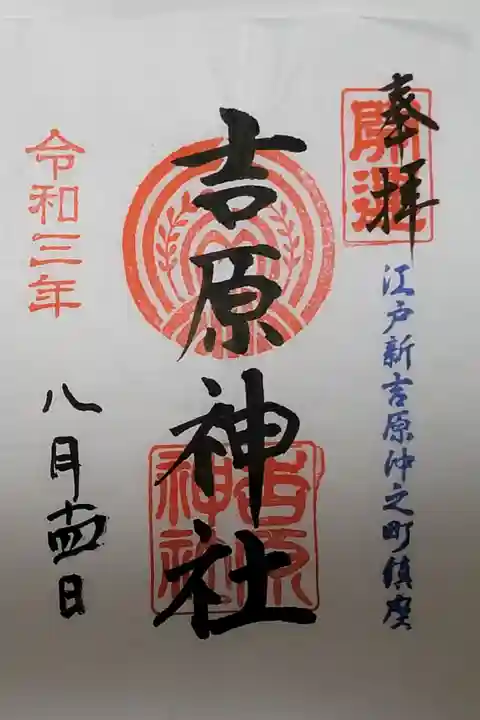 奉拝
開運
江戸新吉原仲之町鎮座
吉原神社
吉原
神社
令和三年
八月十四日